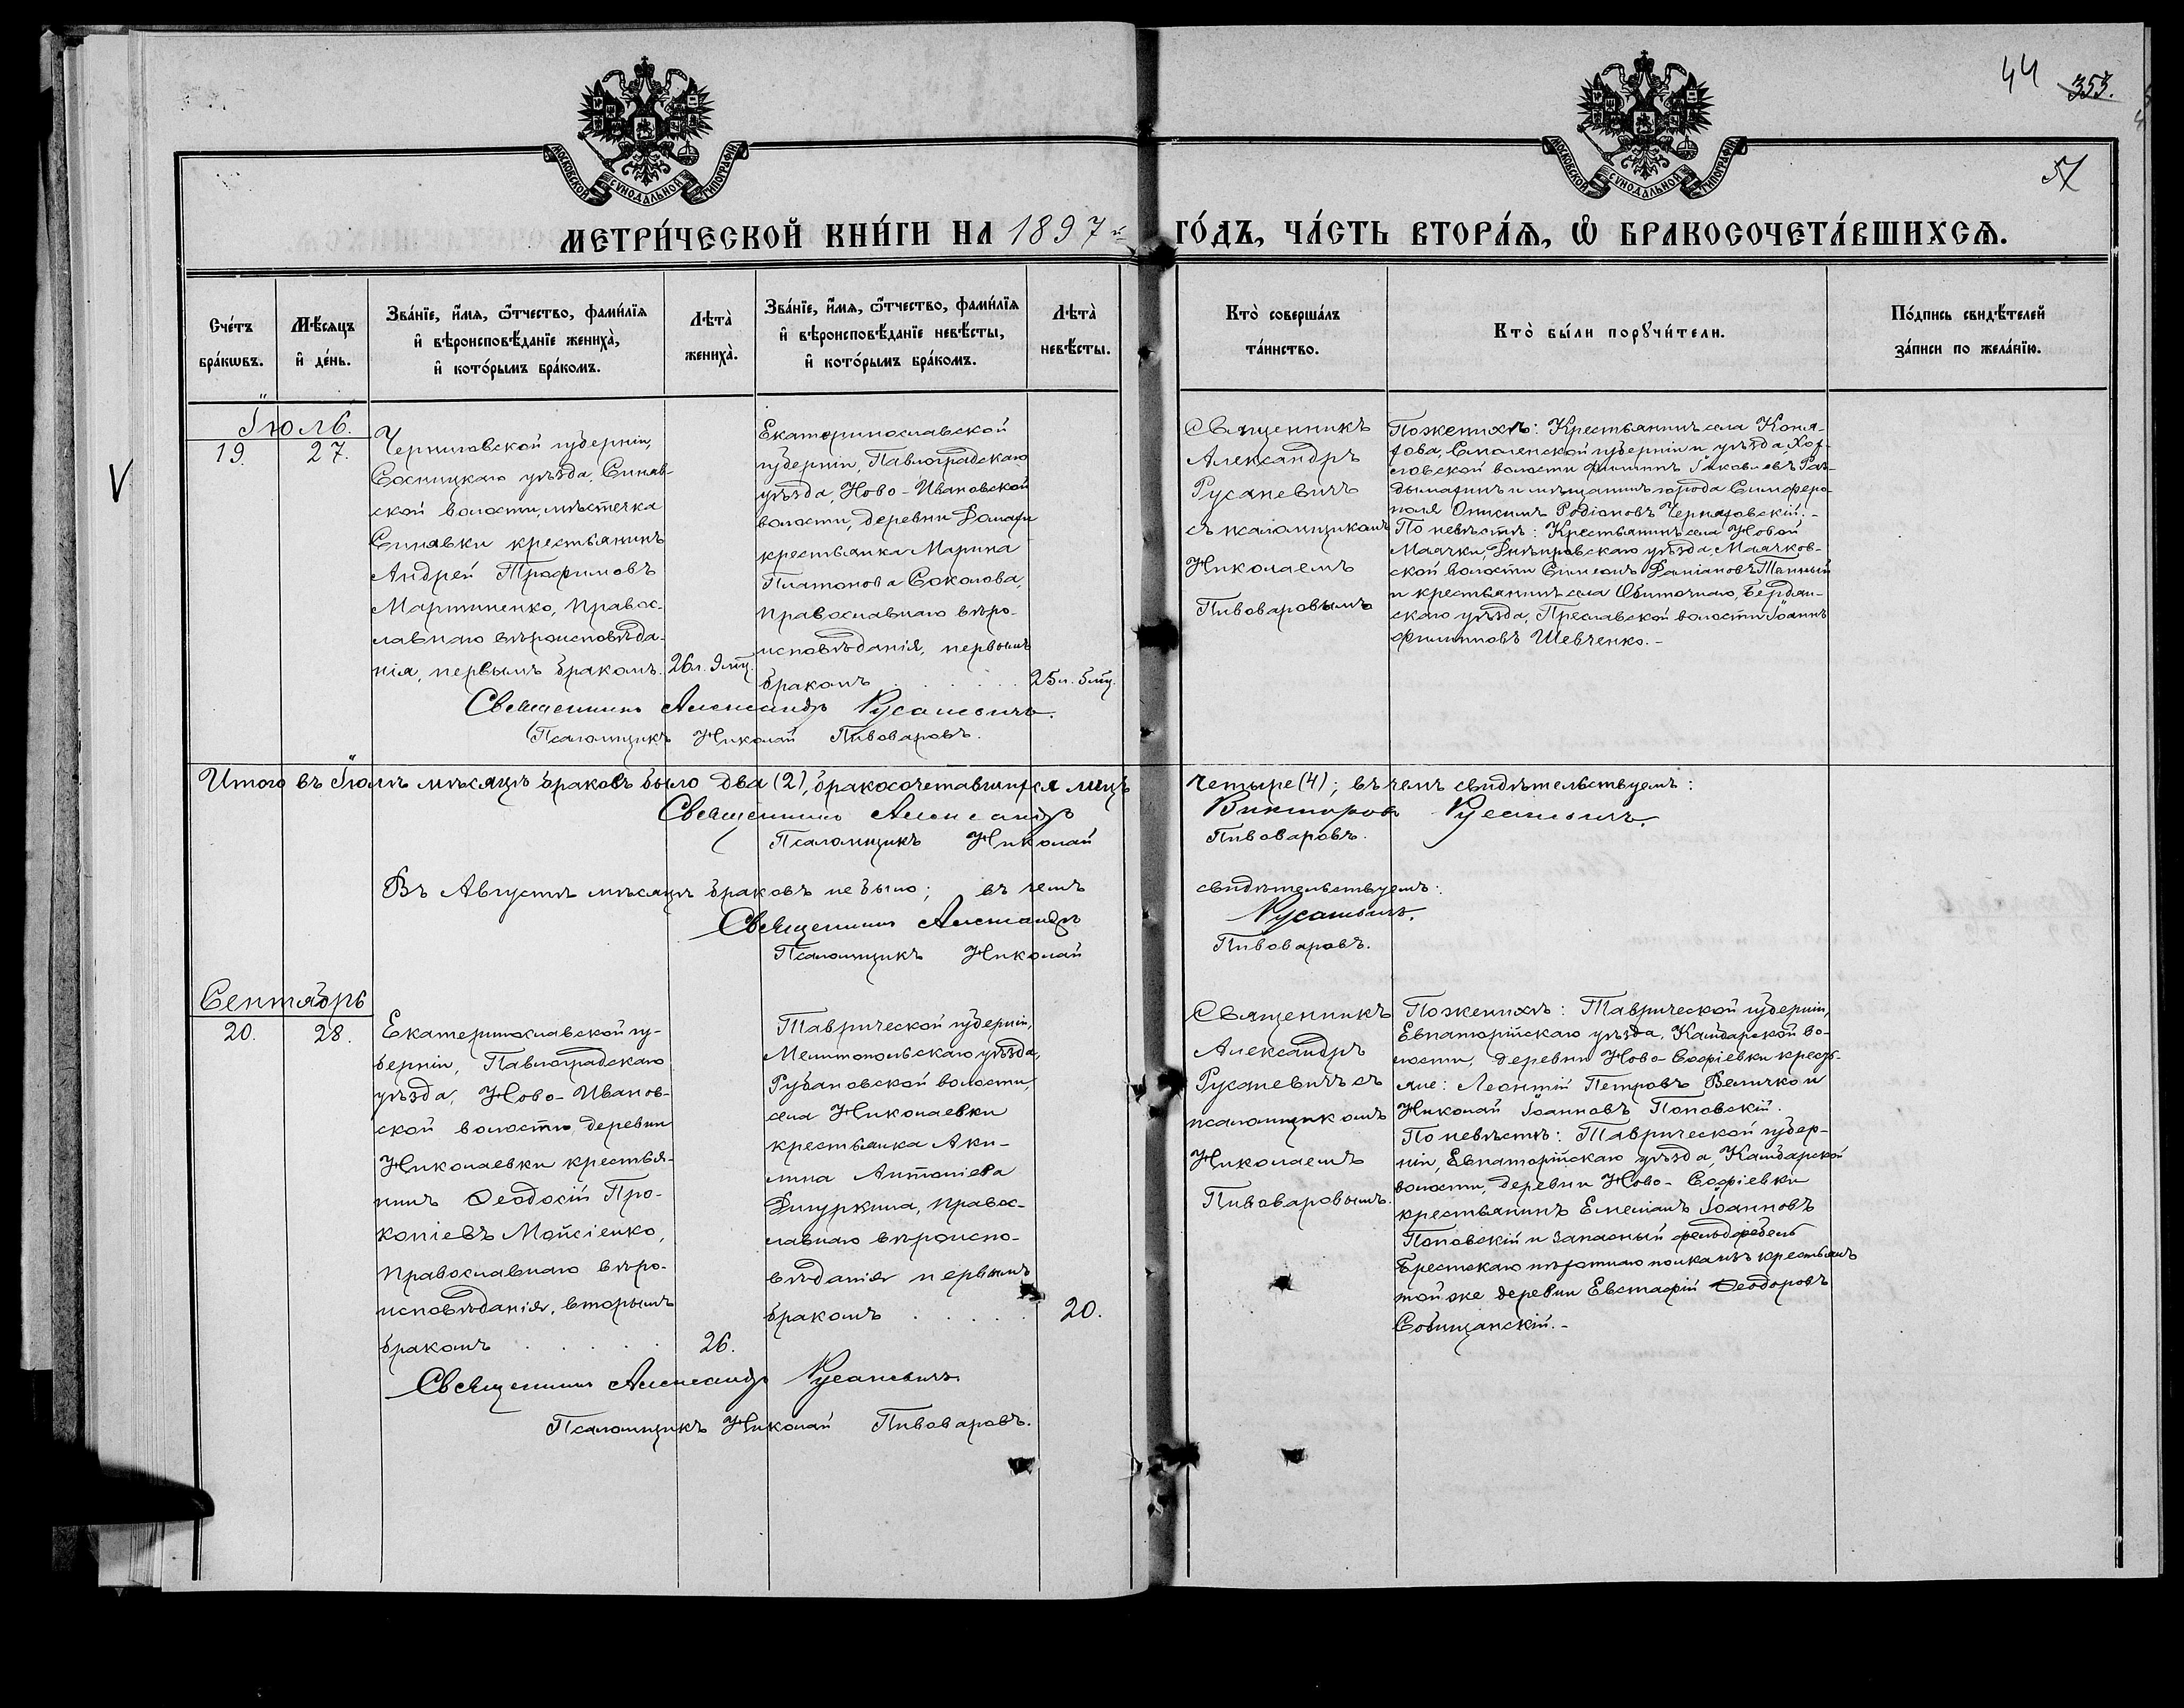 44 353.
57
МОСКОВСКОЙ СУНОДАЛЬНОЙ ТИПОГРАФІИ
МОСКОВСКОЙ СУНОДАЛЬНОЙ ТИПОГРАФІИ
МЕТРИ́ЧЕСКОЙ КНИ́ГИ НА 1897 й ГО́ДЪ, ЧА́СТЬ ВТОРА́Ѧ, Ѡ҆ БРАКОСОЧЕТА́ВШИХСѦ.
Сче́тъ
бра́кѡвъ.
Мѣ́сѧцъ
и҆ де́нь.
Зва́нїе, и҆́мѧ, ѻ҆́тчество, фами́лїѧ
и҆ вѣроисповѣ́данїе жениха̀,
и҆ кото́рымъ бра́комъ.
Лѣта̀
жениха̀.
Зва́нїе, и҆́мѧ, ѻ҆́тчество, фами́лїѧ
и҆ вѣроисповѣ́данїе невѣ́сты,
и҆ кото́рымъ бра́комъ.
Лѣта̀
невѣ́сты.
Кто̀ соверша́лъ
та́инство.
Кто̀ бы́ли порꙋчи́тели.
По́дпись свидѣ́телей
за́писи по жела́нїю.
Іюль.
19. 27.
Черниговской губерніи,
Сосницкаго уѣзда, Синяв-
ской волости, мѣстечка
Синявки крестьянинъ
Андрей Трофимовъ
Мартиненко, правос-
лавнаго вѣроисповѣда-
нія, первымъ бракомъ.
26 л. 9 мц.
Екатеринославской
губерніи, Павлоградскаго
уѣзда, Ново-Ивановской
волости, деревни Домахи
крестьянка Марина
Платонова Соколова,
православнаго вѣро-
исповѣданія, первымъ
бракомъ . . . . .
25 л. 5 мц.
Священникъ
Александръ
Русаневичъ
съ псаломщикомъ
Николаемъ
Пивоваровымъ
По женихѣ: Крестьянинъ села
Смоленской губерніи и уѣзда, Хох-
ловской волости Филиппъ Іаковлевъ
и мѣщанинъ города Симферо-
поля Онисимъ Родіоновъ
По невѣстѣ: Крестьянинъ села Новой
Маячки, Днѣпровскаго уѣзда, Маячков-
ской волости Симеонъ Даміановъ
и крестьянинъ села Обиточнаго, Бердян-
скаго уѣзда, Преславской волости Іоаннъ
Филипповъ Шевченко.-
Священникъ Александръ Русаневичъ.
Псаломщикъ Николай Пивоваровъ.
Итого въ Іюлѣ мѣсяцѣ браковъ было два (2), бракосочетавшихся лицъ четыре (4); въ чемъ свидѣтельствуемъ:
Священникъ Александръ Викторовъ Русаневичъ.
Псаломщикъ Николай Пивоваровъ.
Въ Августѣ мѣсяцѣ браковъ не было; въ чемъ свидѣтельствуемъ:
Священникъ Александръ Русаневичъ.
Псаломщикъ Николай Пивоваровъ.
Сентябрь
20. 28.
Екатеринославской гу-
берніи, Павлоградскаго
уѣзда, Ново-Иванов-
ской волости деревни
Николаевки крестья-
нинъ Ѳеодосій Про-
копіевъ Моисіенко,
православнаго вѣро-
исповѣданія, вторымъ
бракомъ . . . . .
26.
Таврической губерніи,
Мелитопольскаго уѣзда,
Рубановской волости,
села Николаевки
крестьянка Аки-
лина Антоніева
православ-
лавнаго вѣроиспо-
вѣданія первымъ
бракомъ . . . . .
20.
Священникъ
Александръ
Русаневичъ съ
псаломщикомъ
Николаемъ
Пивоваровымъ.
По женихѣ: Таврической губерніи,
Евпаторійскаго уѣзда, Камбарской во-
лости, деревни Ново-Софіевки кресть-
яне: Леонтій Петровъ Величко и
Николай Іоанновъ Поповскій.
По невѣстѣ: Таврической губер-
ніи, Евпаторійскаго уѣзда, Камбарской
волости, деревни Ново-Софіевки
крестьянинъ Емеліанъ Іоанновъ
Поповскій и запасный фельдфебель
Брестскаго пѣхотнаго полка изъ крестьянъ
той же деревни Евстафій Ѳеодоровъ
Собищанскій.-
Священникъ Александръ Русаневичъ.
Псаломщикъ Николай Пивоваровъ.